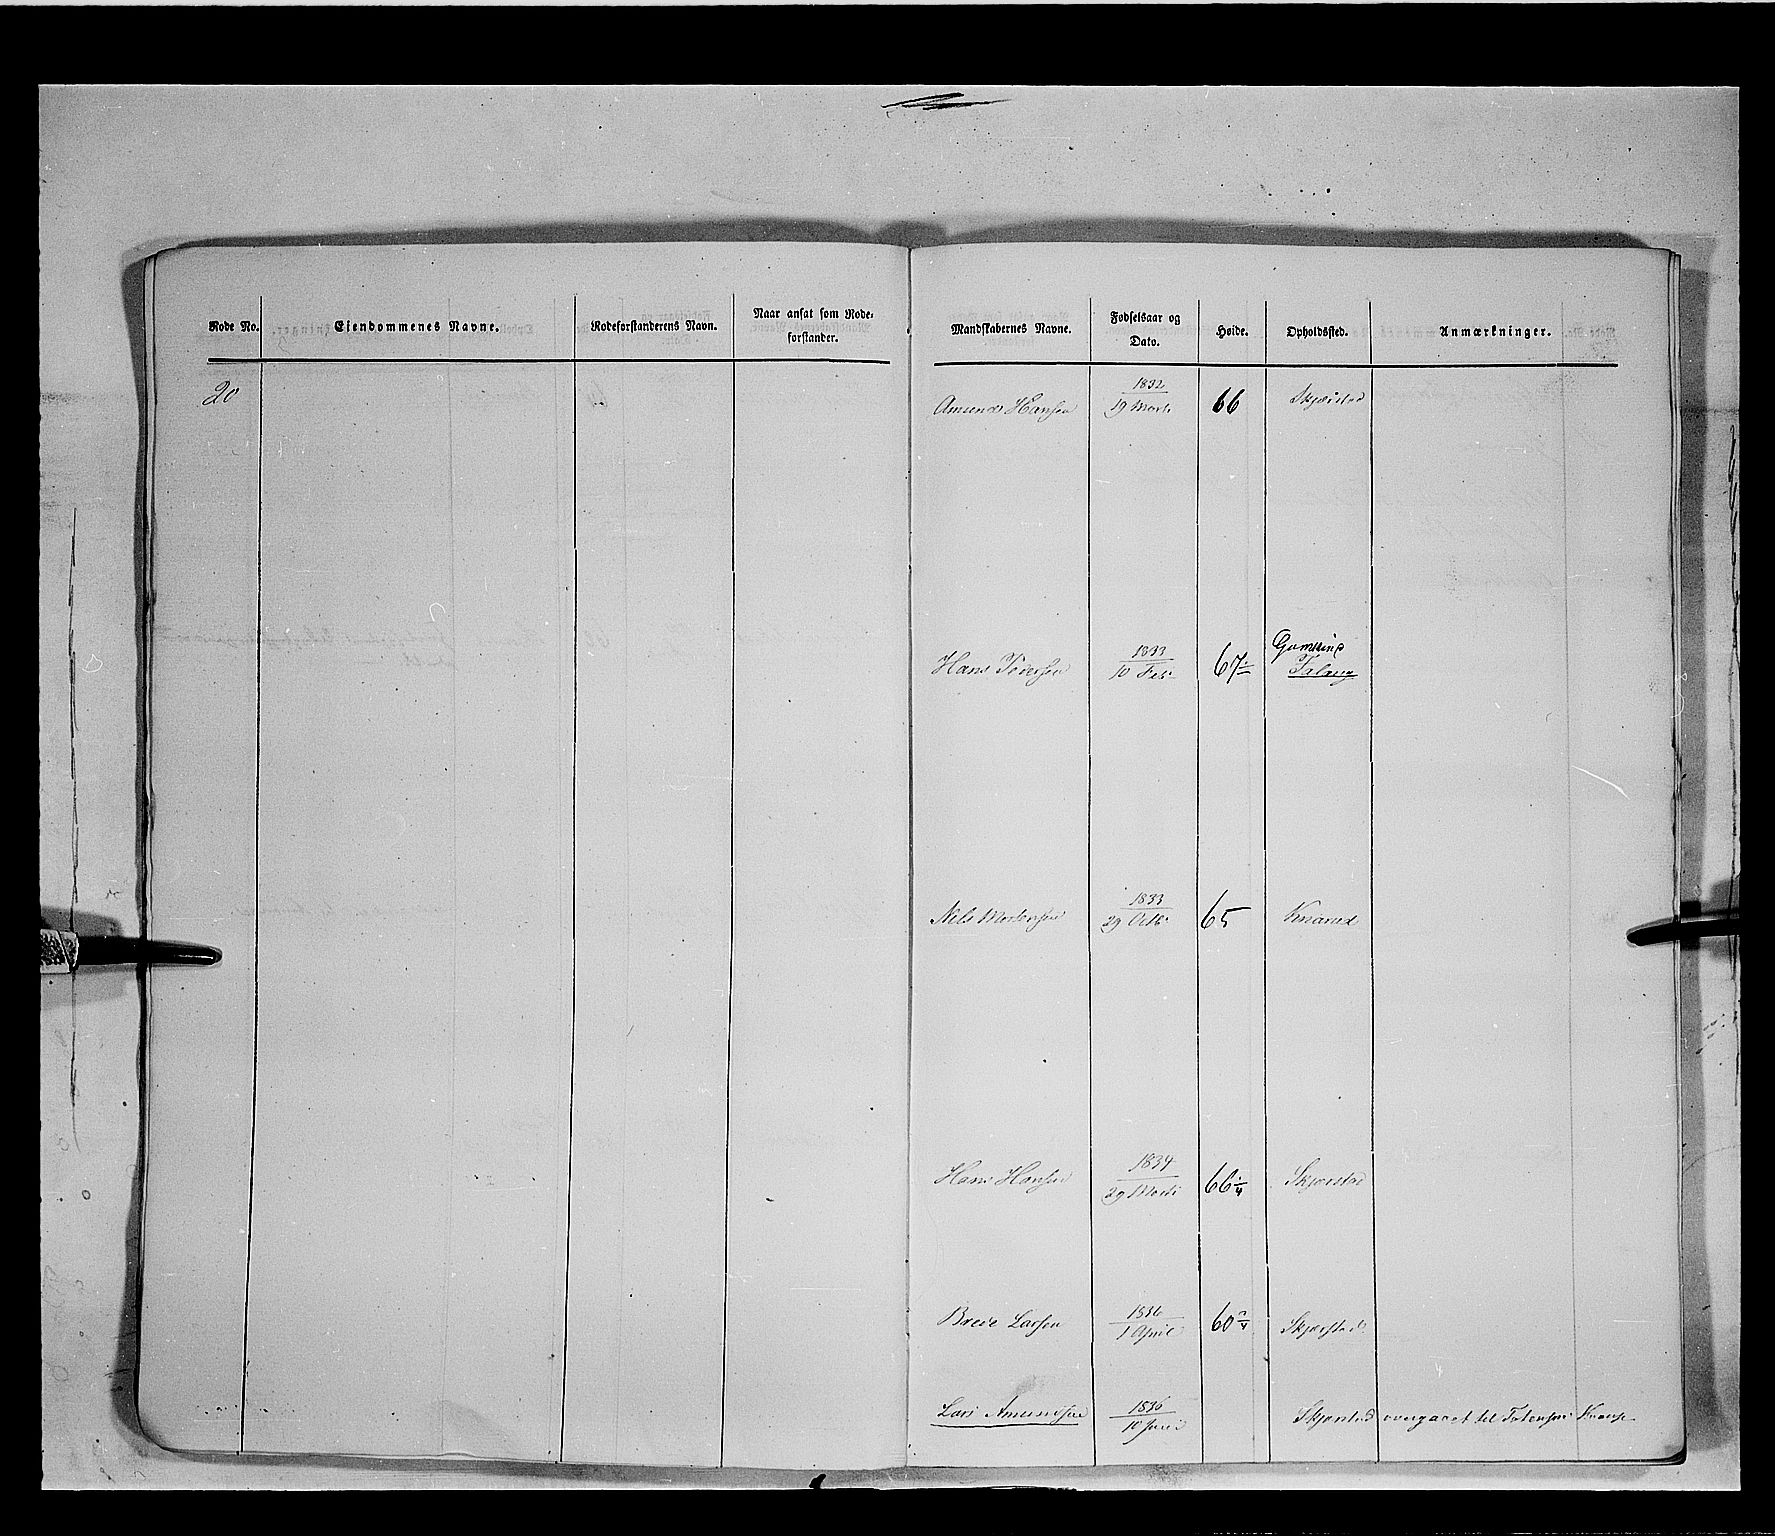 Rode No.
Eiendommenes Navne.
Rodeforstanderens Navn.
Naar ansat som Rode-
forstander.
Mandskabernes Navne.
Fødselsaar og
Dato.
Høide.
Opholdssted.
Anmærkninger.
20
Amund Hansen
1832
19 Marts
66
Skjærstad
Hans
1833
10 Feb
67
Nils Mortensen
1833
29 Octb
65
Knarud
Hans Hansen
1834
29 Marts
66 1/4
Skjærstad
Brede Larsen
1836
1 April
60 3/4
Skjærstad
Lars Amundsen
1836
10 Juni
Skjærstad overgaaet til